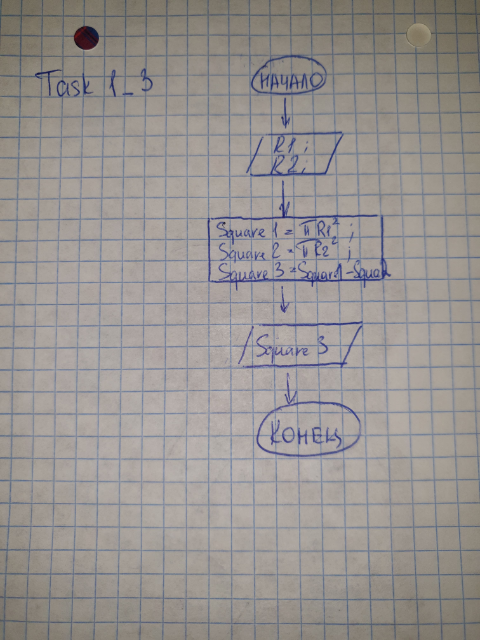 Task 1_3
НАЧАЛО
R1;
R2;
Square 1 = πR1²;
Square 2 = πR2²;
Square 3 = Squar1 - Squa2
Square 3
КОНЕЦ